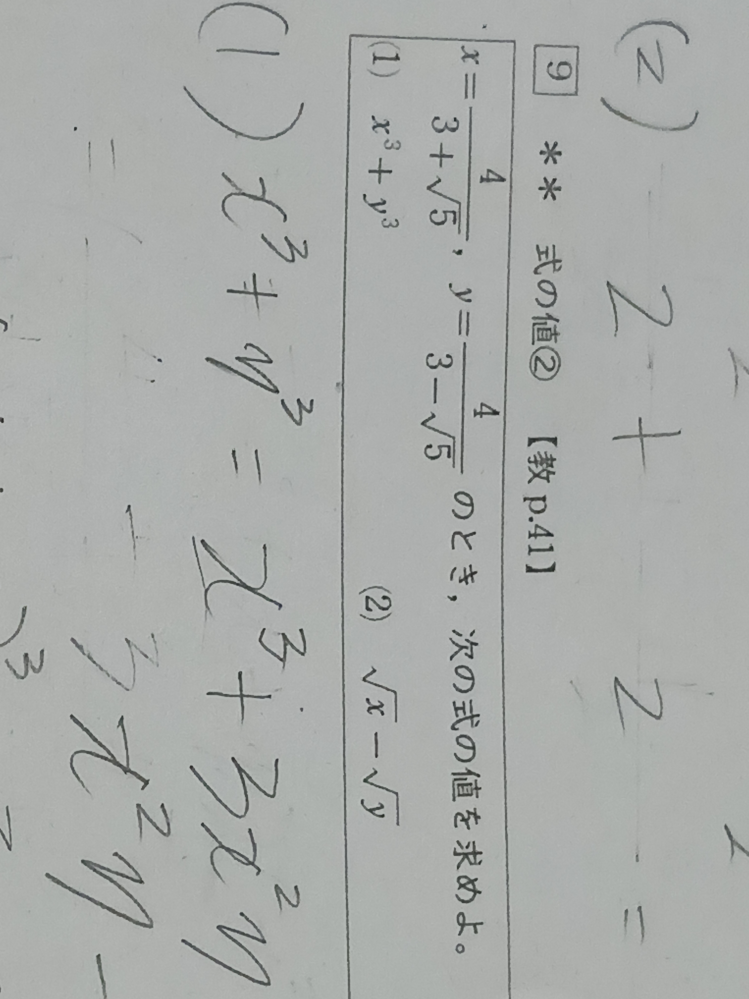 (2) 2 + 2 =
9 ** 式の値② 【教 p.41】
x = 4/(3+√5), y = 4/(3−√5) のとき,次の式の値を求めよ。
(1) x³ + y³ (2) √x − √y
(1) x³ + y³ = x³ + 3x²y
= − 3x²y −
)³